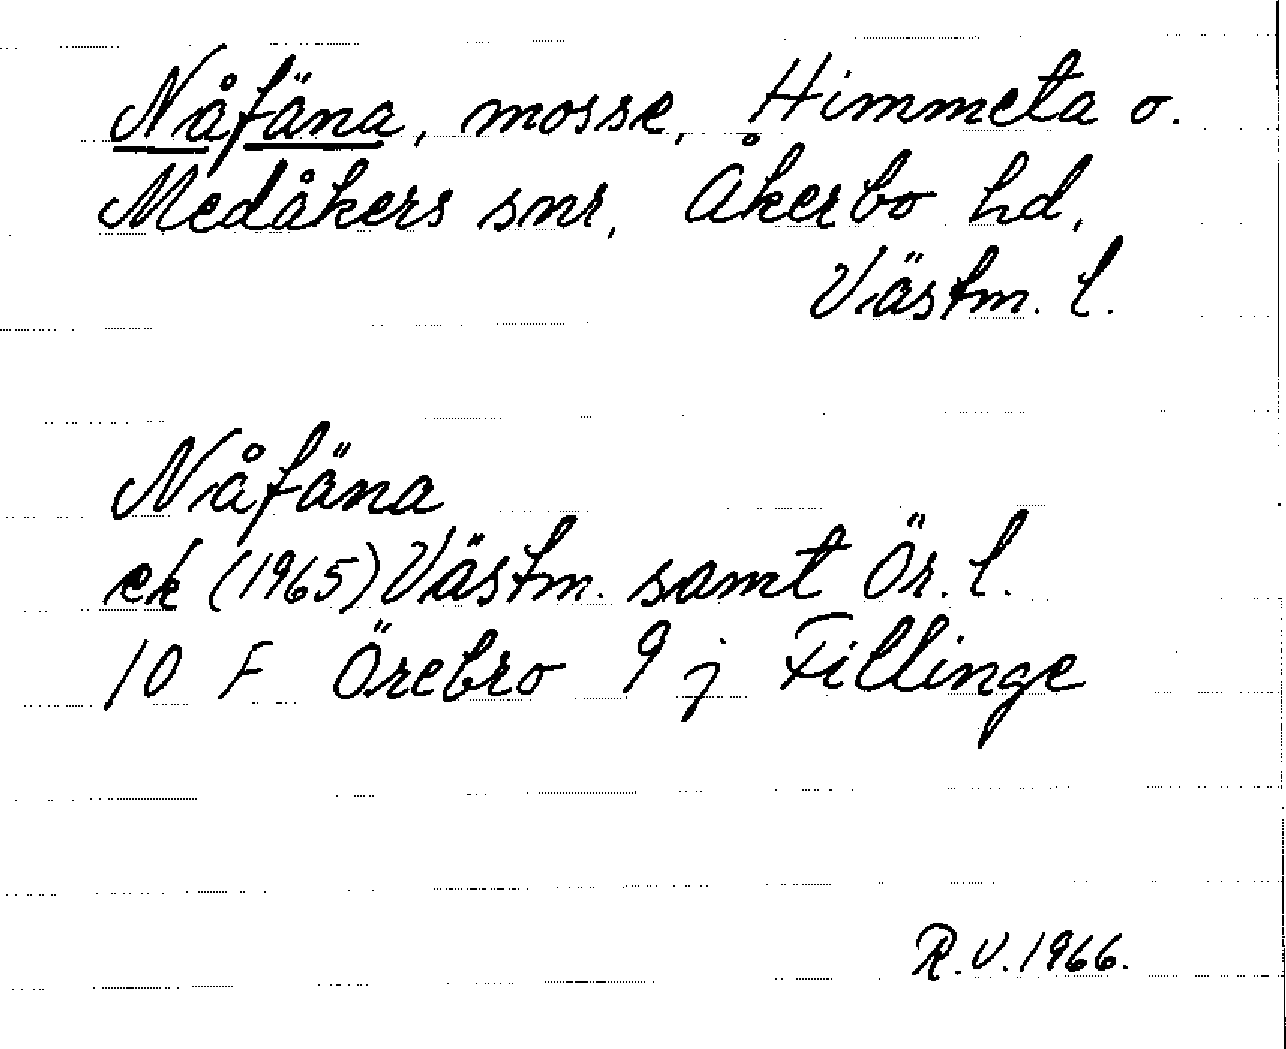 Nåfäna, mosse, Himmeta o.
Medåkers snr, Åkerbo hd,
Västm. l.
Nåfäna
ek (1965) Västm. samt Ör. l.
10 F Örebro 9 j Fillinge
R.V. 1966.